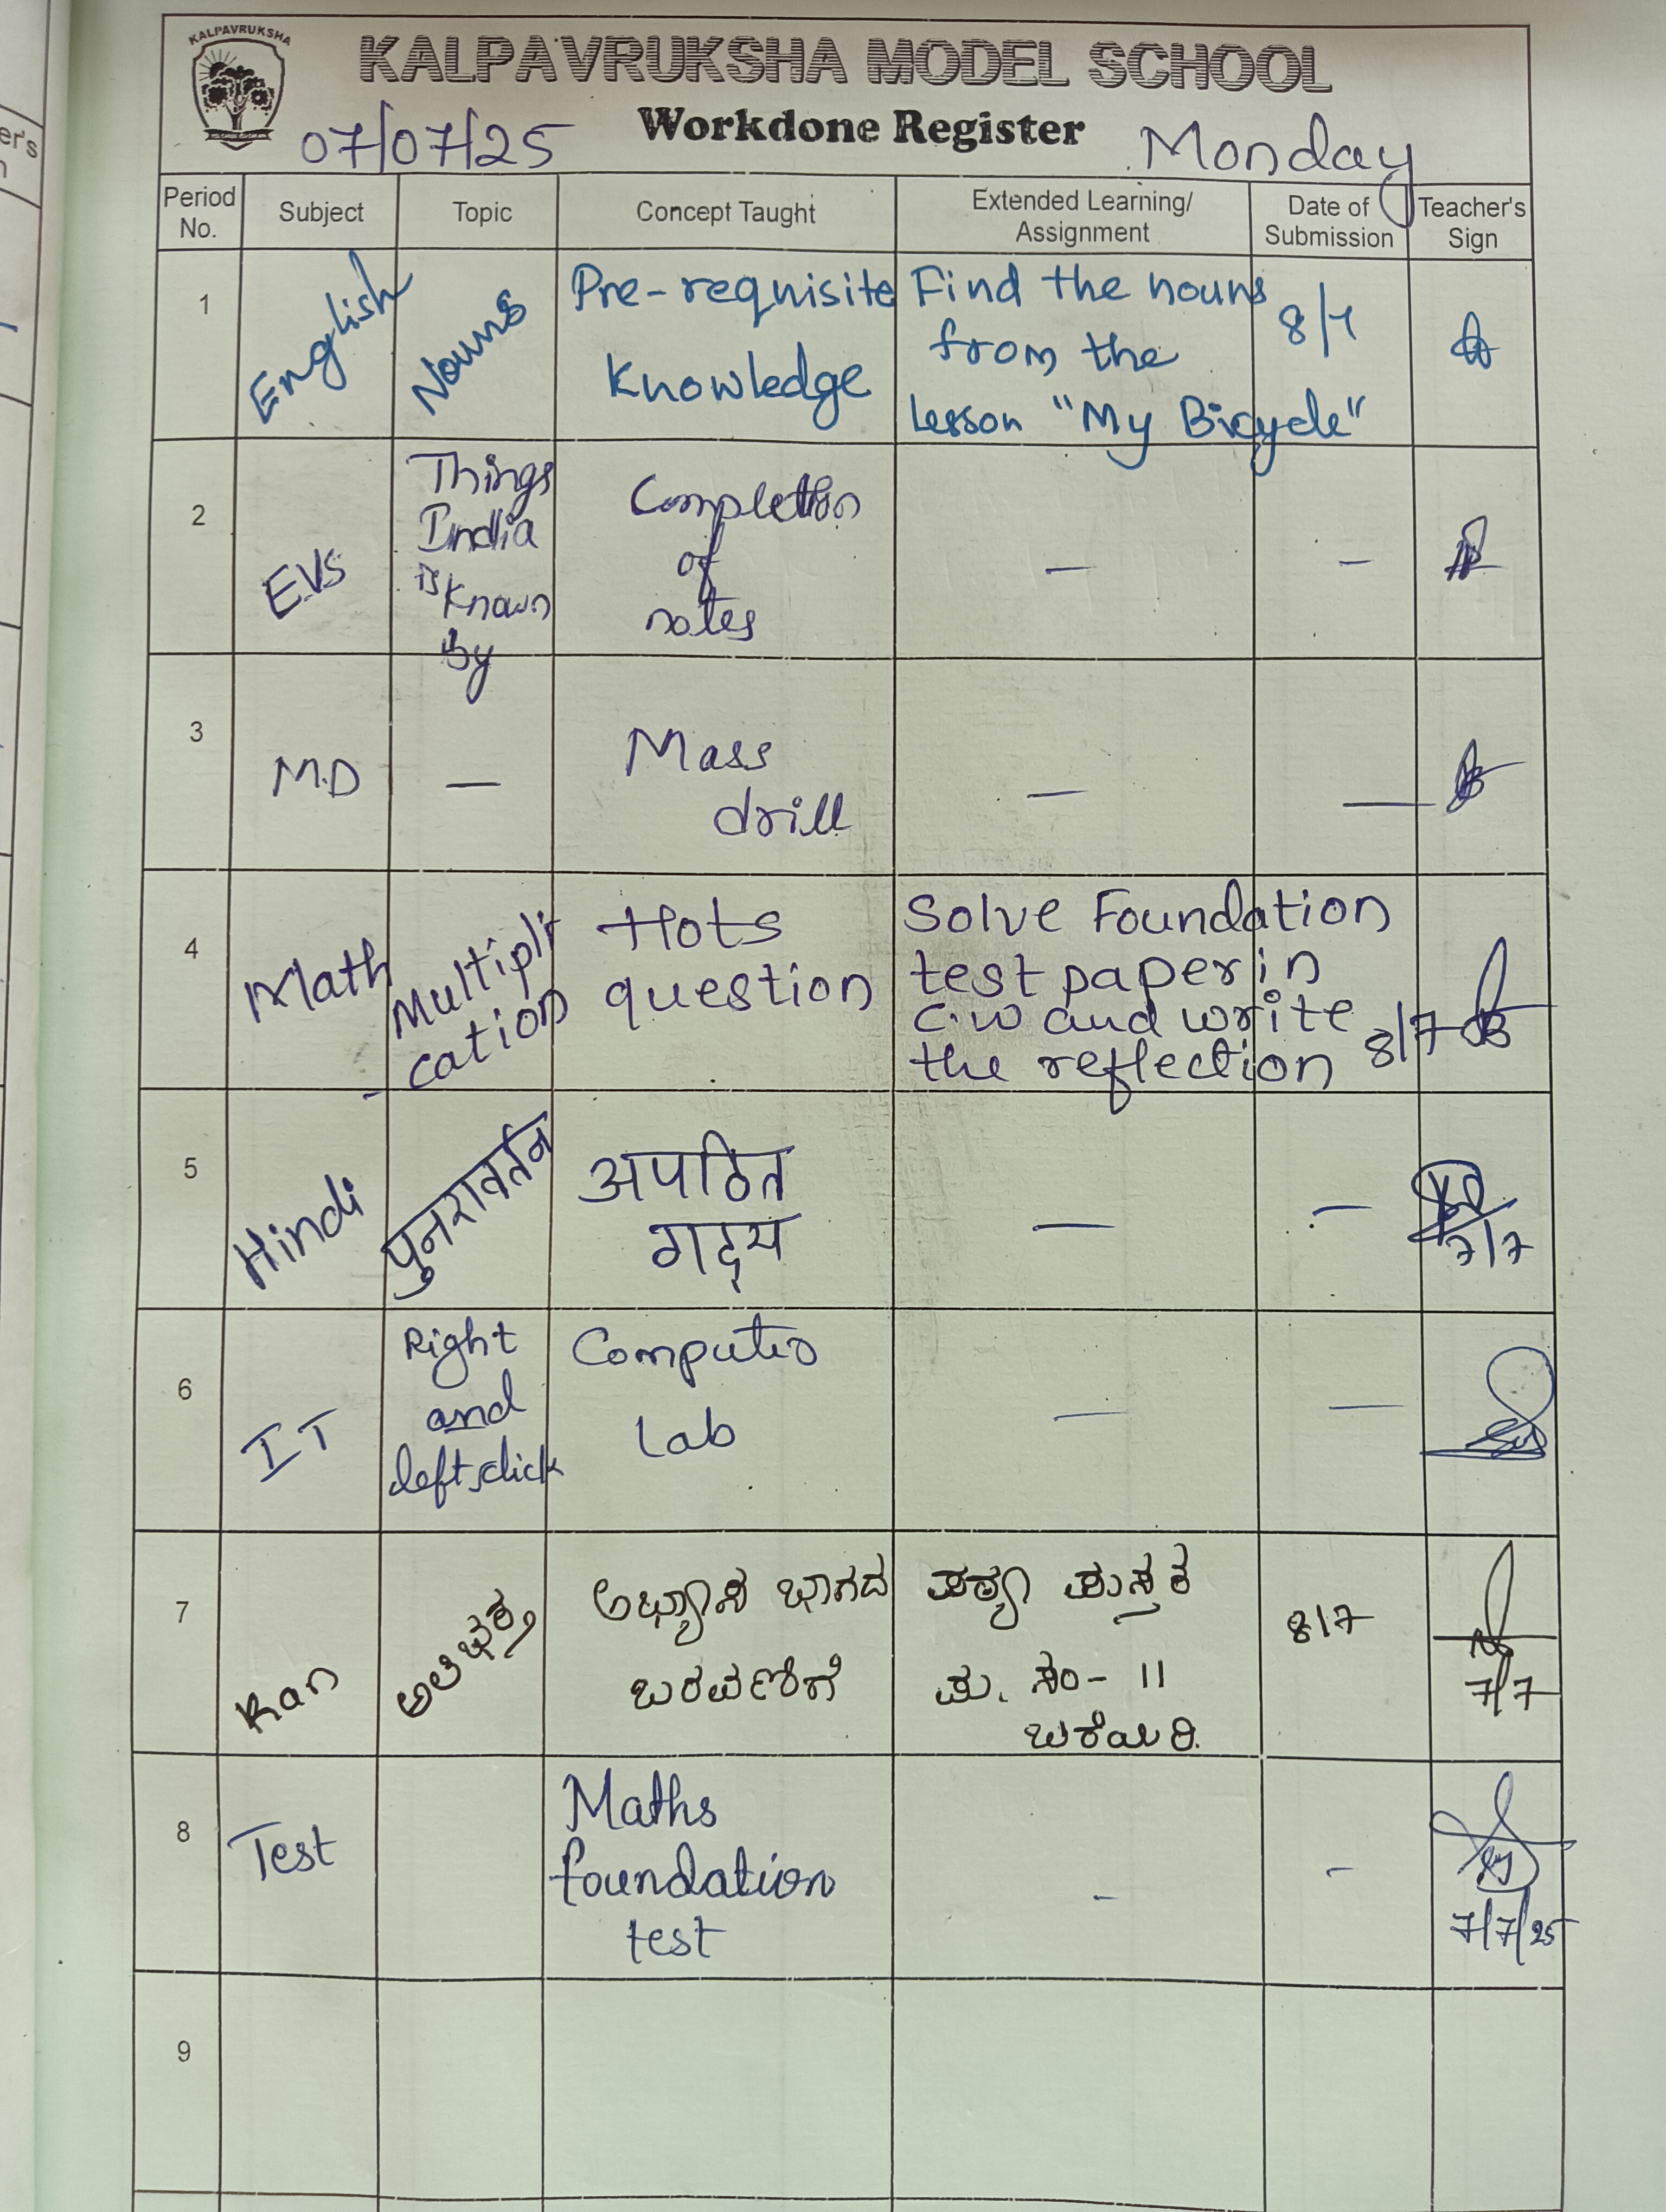 KALPAVRUKSHA
KALPAVRUKSHA MODEL SCHOOL
Workdone Register
07/07/25 Monday
Period No. Subject Topic Concept Taught Extended Learning/ Assignment Date of Submission Teacher's Sign
1 English Nouns Pre-requisite Knowledge Find the nouns from the lesson "My Bicycle" 8/7
2 EVS Things India is known by Completion of notes — —
3 M.D — Mass drill — —
4 Math Multipli cation Hots question Solve Foundation test paper in C.W and write the reflection 8/7
5 Hindi पुनरावर्तन अपठित गद्य — — 7/7
6 IT Right and left click Computer Lab — —
7 Kan ಅಭ್ಯಾಸ ಭಾಗದ ಬರವಣಿಗೆ ಪಠ್ಯ ಪುಸ್ತಕ ಪು. ಸಂ- 11 ಬರೆಯಿರಿ. 8/7 7/7
8 Test Maths foundation test - - 7/7/25
9
er's